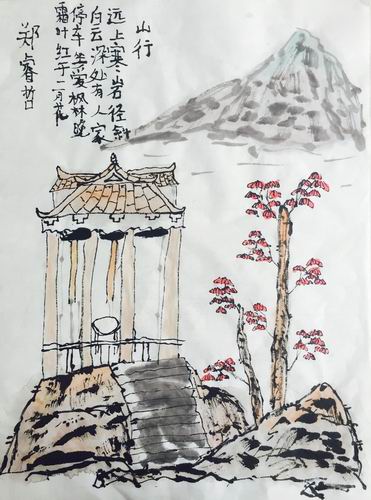 山行
远上寒山石径斜
白云深处有人家
停车坐爱枫林晚
霜叶红于二月花
郑睿哲